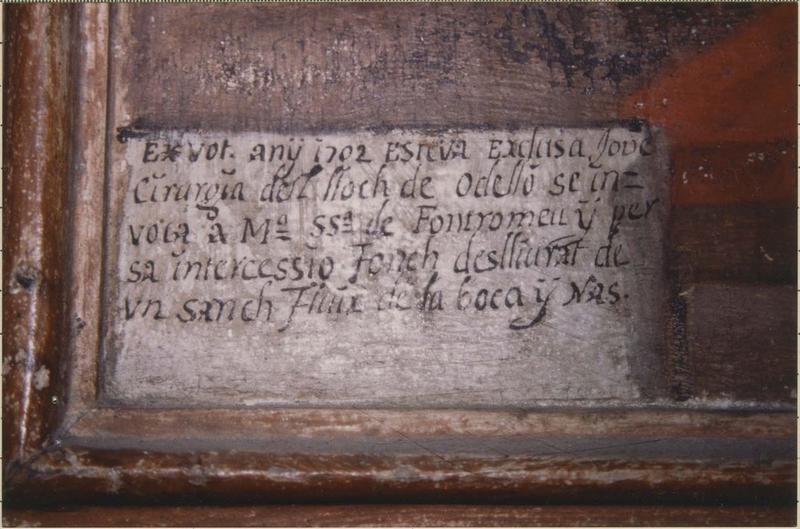 Ex vot. anÿ 1702 Esteva Exclusa Jove
Cirurgia dell lloch de Odelló se in=
vota a Mª SSª de Fontromeu ÿ per
sa intercessió Fonch deslliurat de
vn sanch Fluix de la boca ÿ Nas.